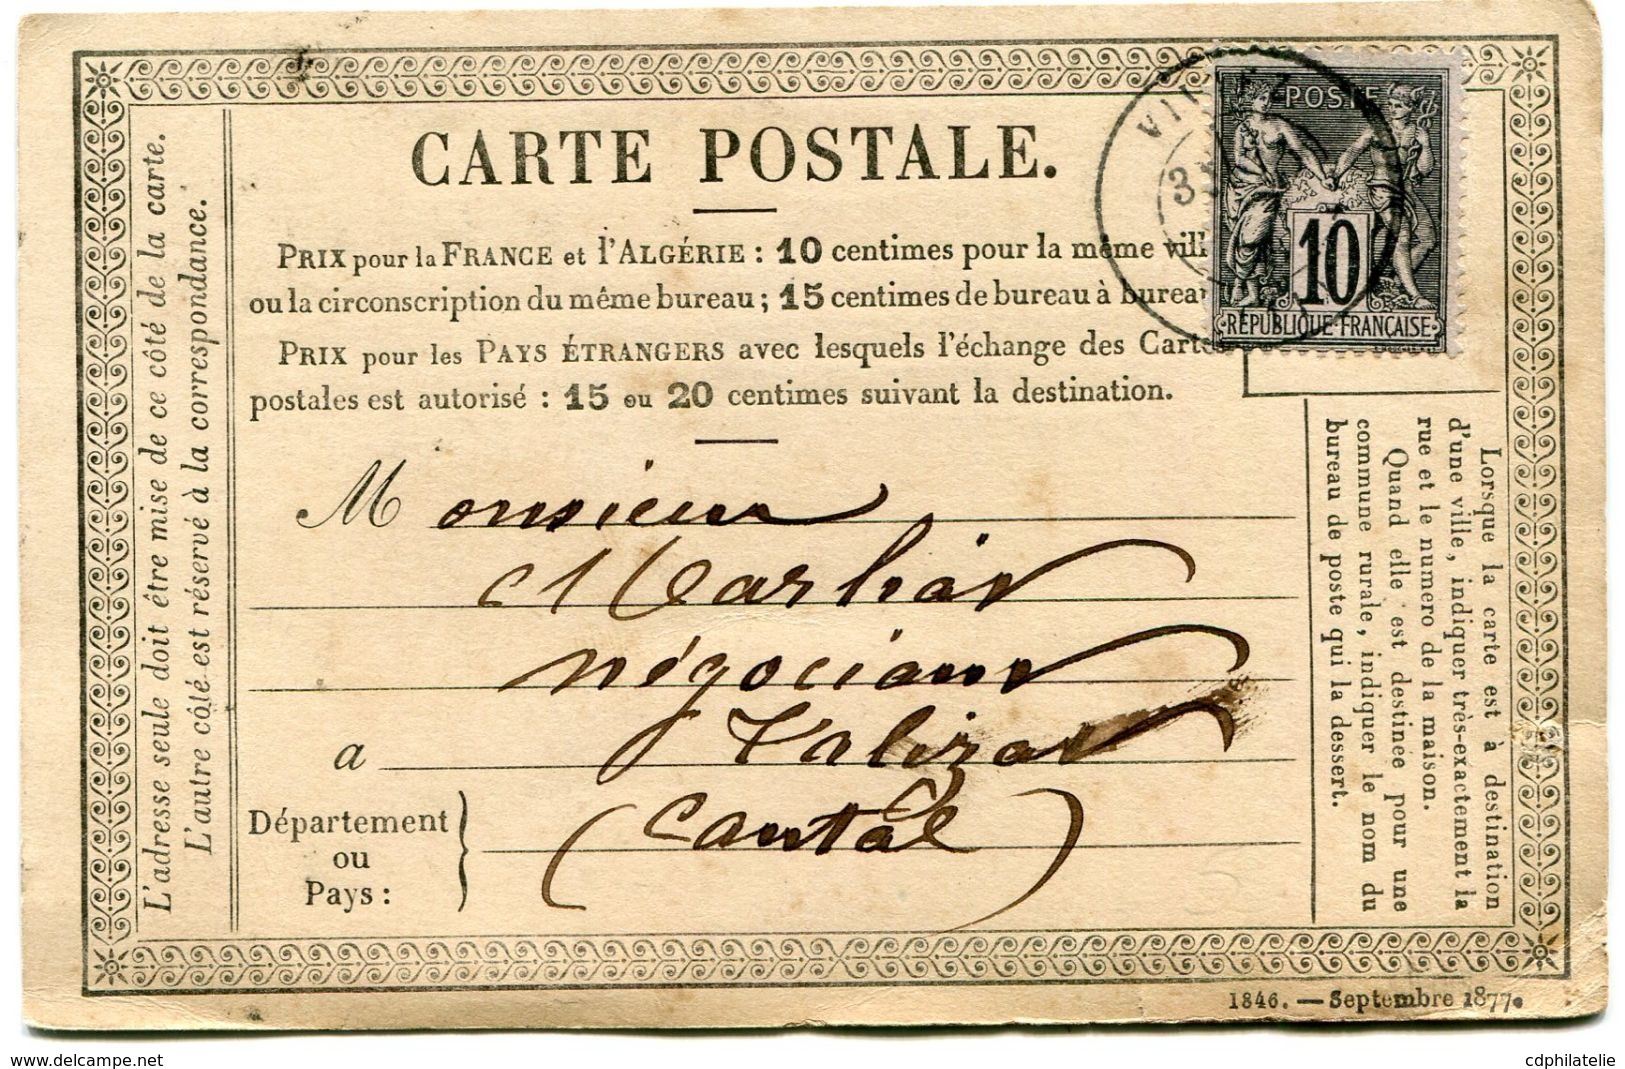 CARTE POSTALE.
PRIX pour la FRANCE et l'ALGÉRIE : 10 centimes pour la même vill
ou la circonscription du même bureau ; 15 centimes de bureau à bureau
PRIX pour les PAYS ÉTRANGERS avec lesquels l'échange des Cartes
postales est autorisé : 15 ou 20 centimes suivant la destination.
POSTE
10
RÉPUBLIQUE FRANÇAISE
3
L'adresse seule doit être mise de ce côté de la carte.
L'autre côté est réservé à la correspondance.
Monsieur
négociant
a
Département
ou
Pays :
(Cantal)
Lorsque la carte est à destination
d'une ville, indiquer très-exactement la
rue et le numéro de la maison.
Quand elle est destinée pour une
commune rurale, indiquer le nom du
bureau de poste qui la dessert.
1846. — Septembre 1877.
www.delcampe.net
cdphilatelie